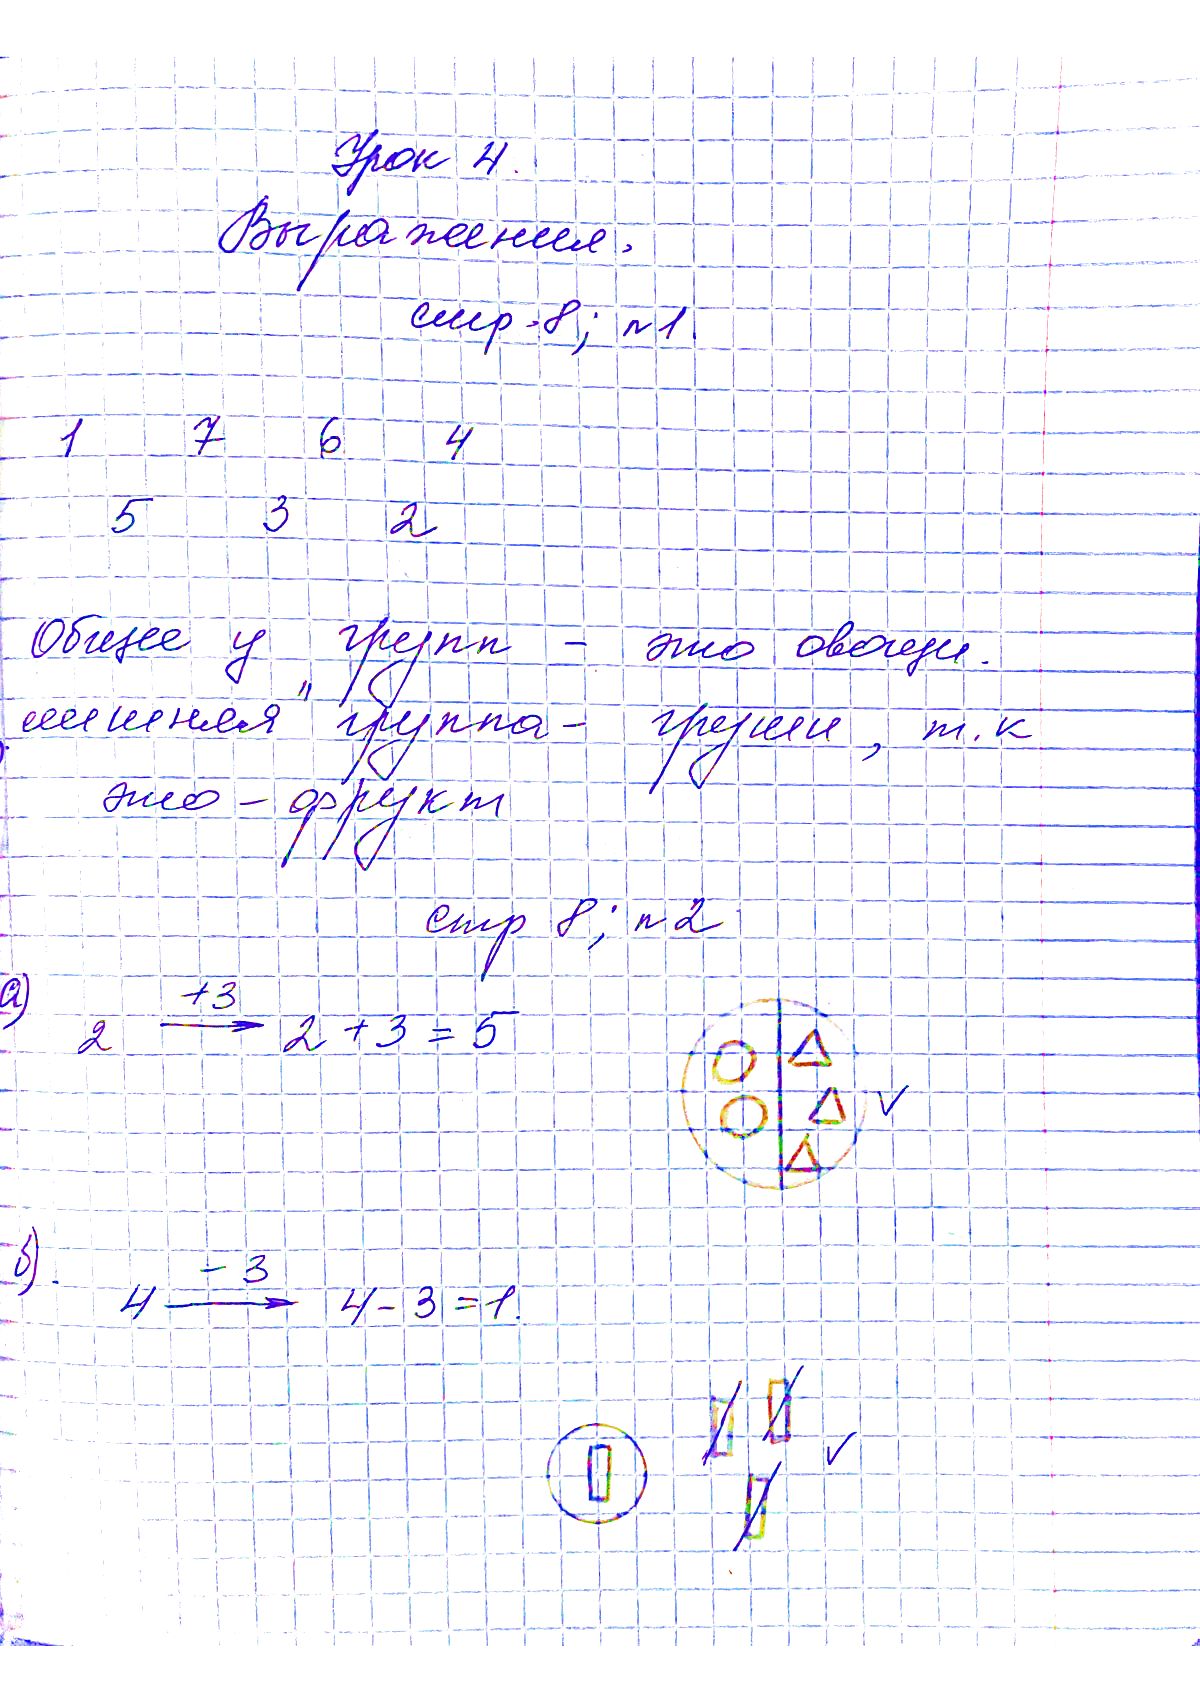 Урок 4.
Выражения.
стр. 8; n1.
1 7 6 4
5 3 2
Общее у групп - это овощи.
"лишняя" группа - груши, т.к
это - фрукт
стр 8; n2
а)
+3
2 → 2 + 3 = 5
б).
- 3
4 → 4 - 3 = 1.